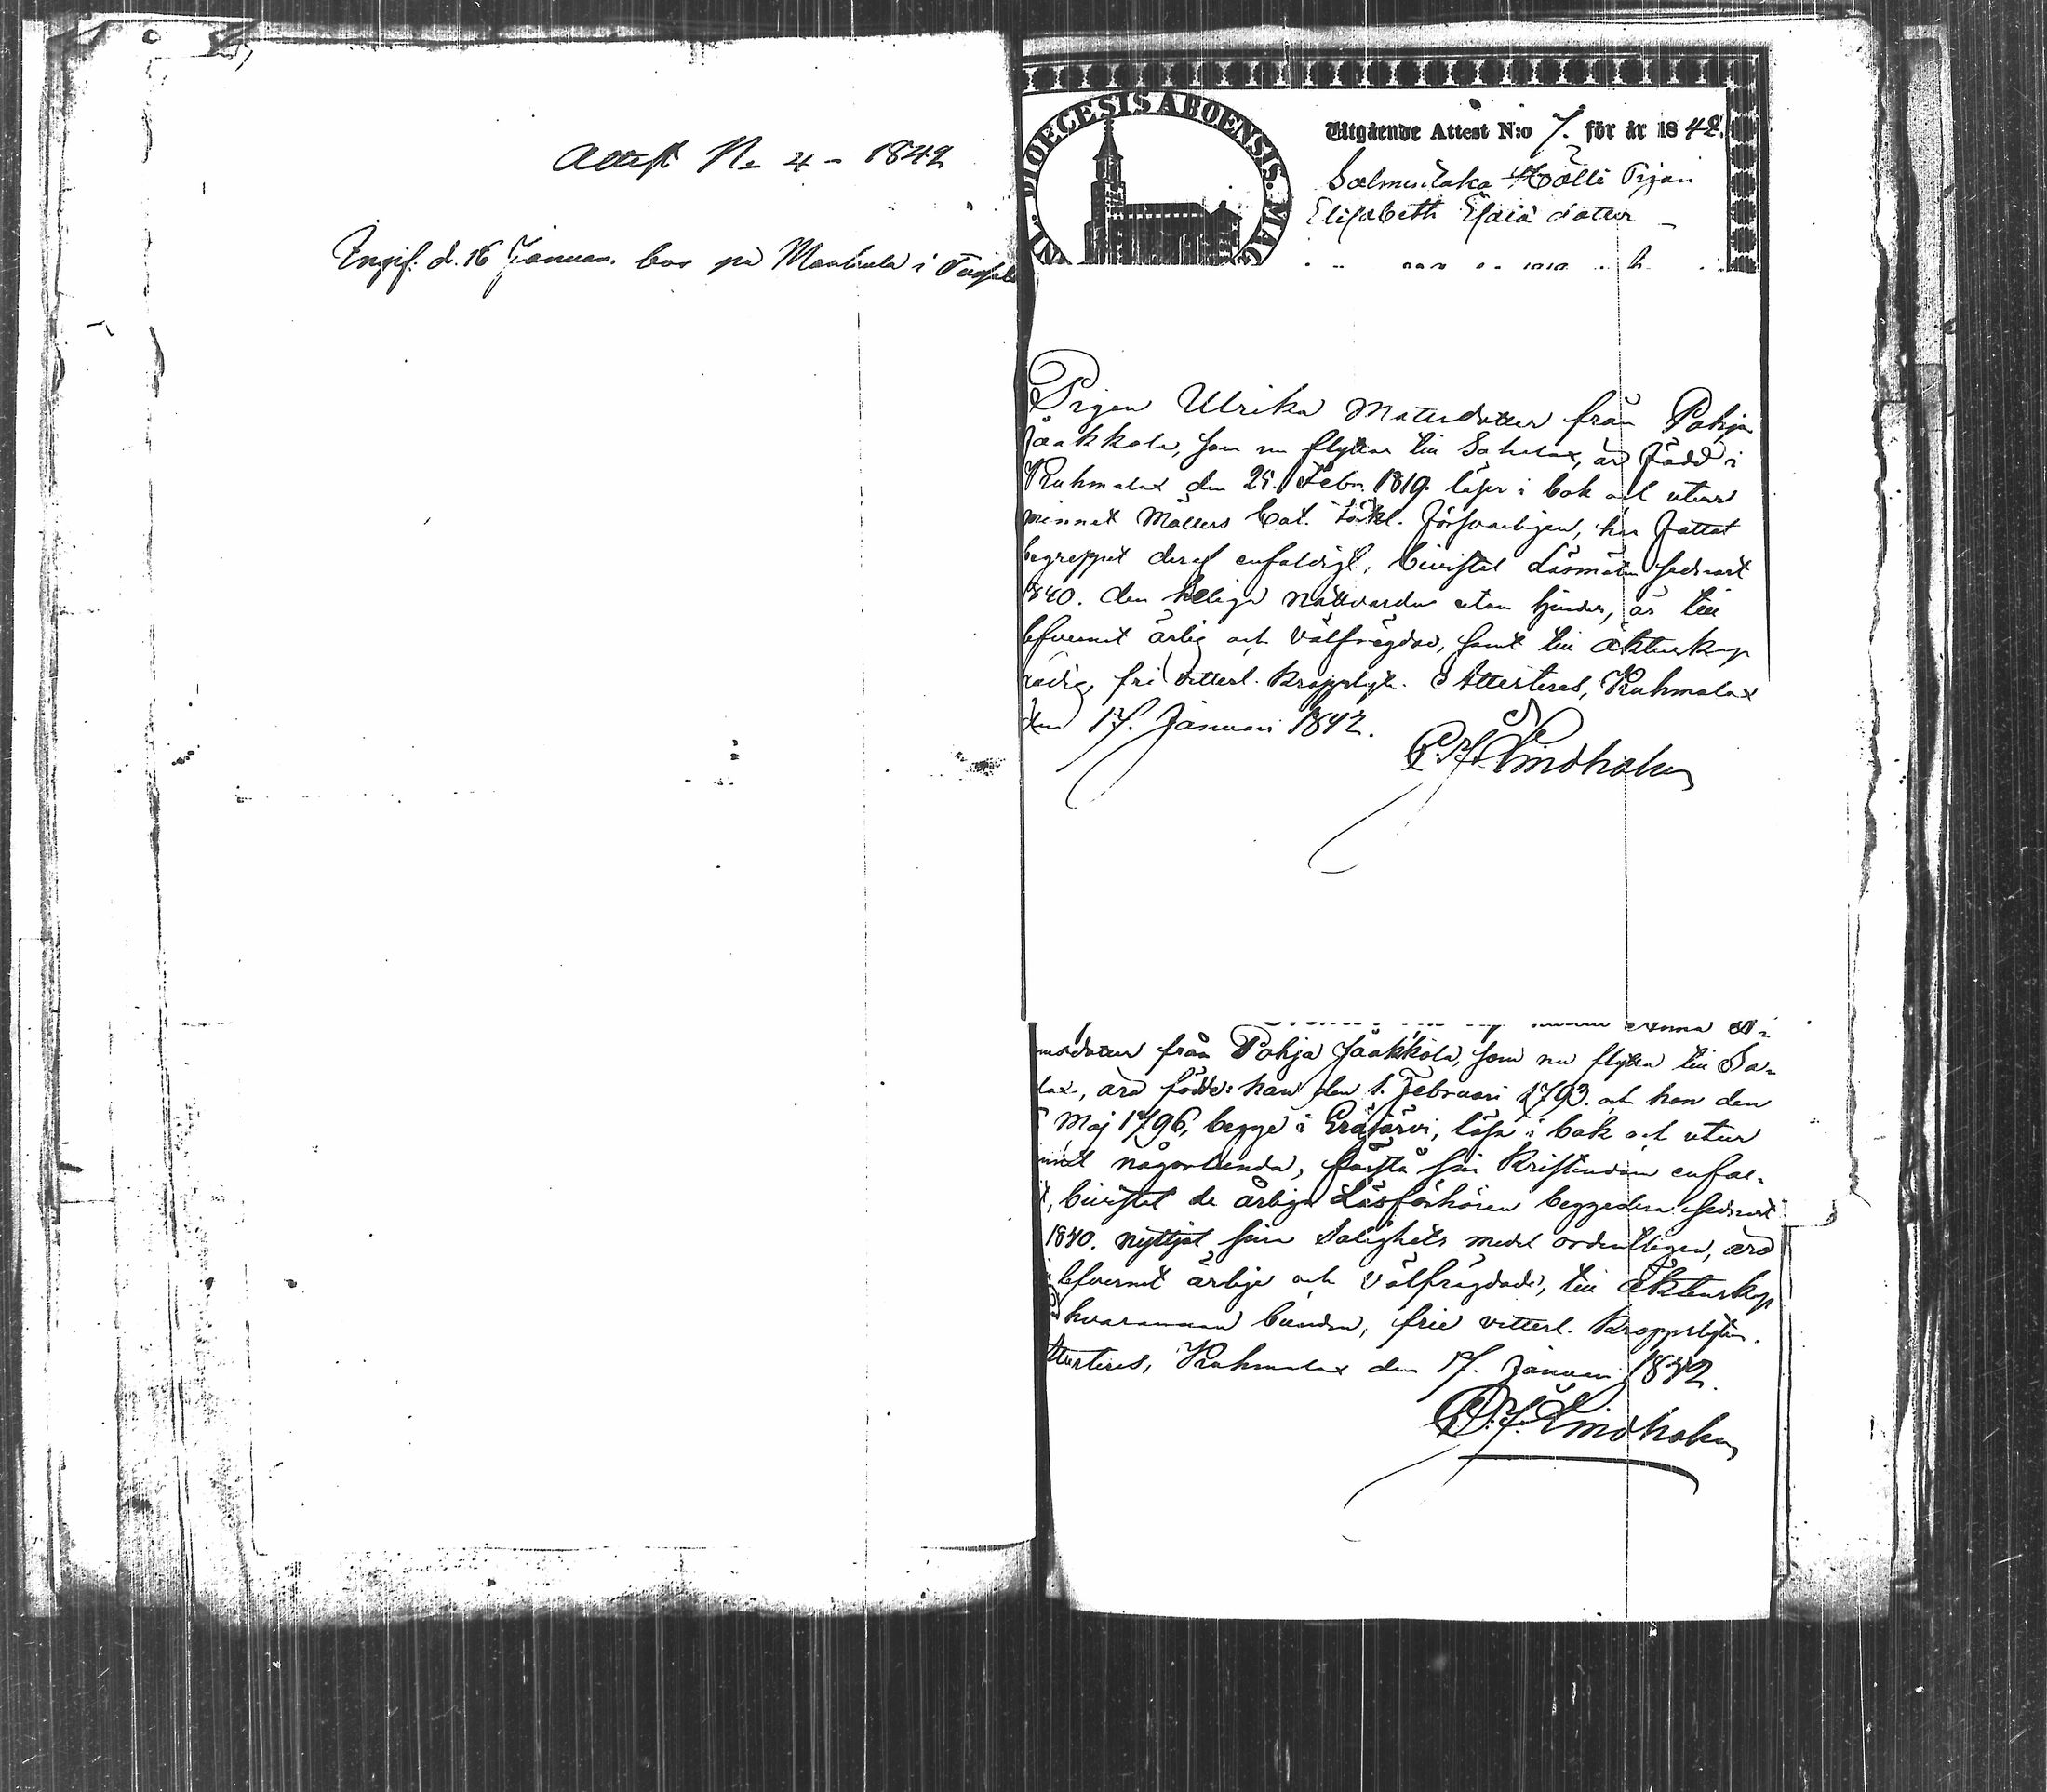 Attest No 4 - 1842
Ingif. d. 16 Januari. bor på i
DIOECESIS ABOENSIS. MAG
Utgående Attest N:o 7. för år 1842.
Salmentaka Hölli Pigan
Elisabeth Esaiä dotter
Pigan Ulrika Matsdotter från Pohja
Jaakkola, som nu flyttar till Sahalax, är född i
Kuhmalax den 25. Febr. 1819. läser i bok och utur
minnet Möllers Cat. förkl. försvarligen, har fattat
begreppet deraf enfaldigt, bivistat Läsmöten sednast
1840. den heliga Nattvarden utan hinder, är till
lefvernet ärlig och välfrägdad, samt till äktenskap
ledig, fri vitterl. kroppslyte. Attesteras, Kuhmalax
den 17. Januari 1842.
Lindholm
Anna A-
msdotter från Pohja Jaakkola, som nu flytta till Sa-
lax, äro födde: han den 1. Februari 1793. och hon den
Maj 1796, begge i Eräjärvi, läsa i bok och utur
minnet någorlunda, förstå sin Kristendom enfal-
t, bivistat de årliga Läsförhören beggedera sednast
1840. nyttjat sina Salighets medel ordentligen, äro
lefvernet ärliga och välfrägdade, till äktenskap
hvarannan bundna, frie vitterl. kroppslyten.
Attesteras, Kuhmalax den 17. Januari 1842.
Lindholm